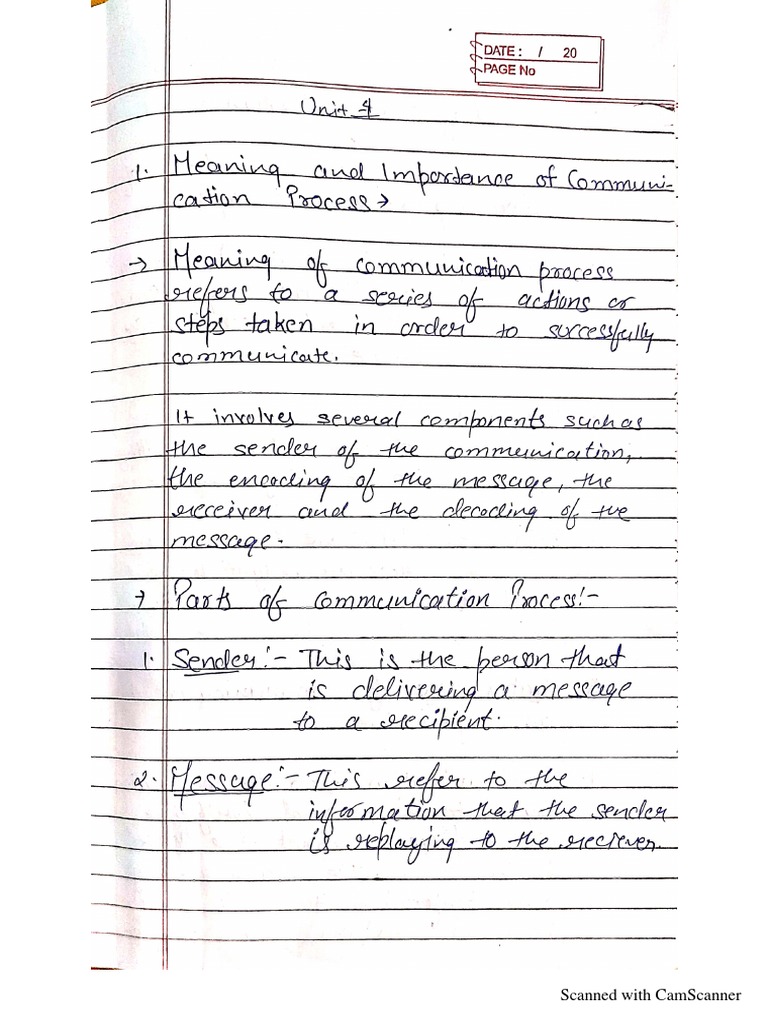 DATE: / 20
PAGE No
Unit - 1
1. Meaning and Importance of Communi-
cation Process →
→ Meaning of communication process
refers to a series of actions or
steps taken in order to successfully
communicate.
It involves several components such as
the sender of the communication,
the encoding of the message, the
receiver and the decoding of the
message.
→ Parts of Communication Process:-
1. Sender:- This is the person that
is delivering a message
to a recipient.
2. Message:- This refer to the
information that the sender
is replaying to the reciever.
Scanned with CamScanner